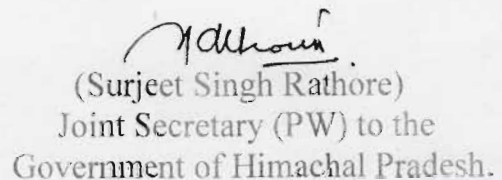 (Surjeet Singh Rathore)
Joint Secretary (PW) to the
Government of Himachal Pradesh.